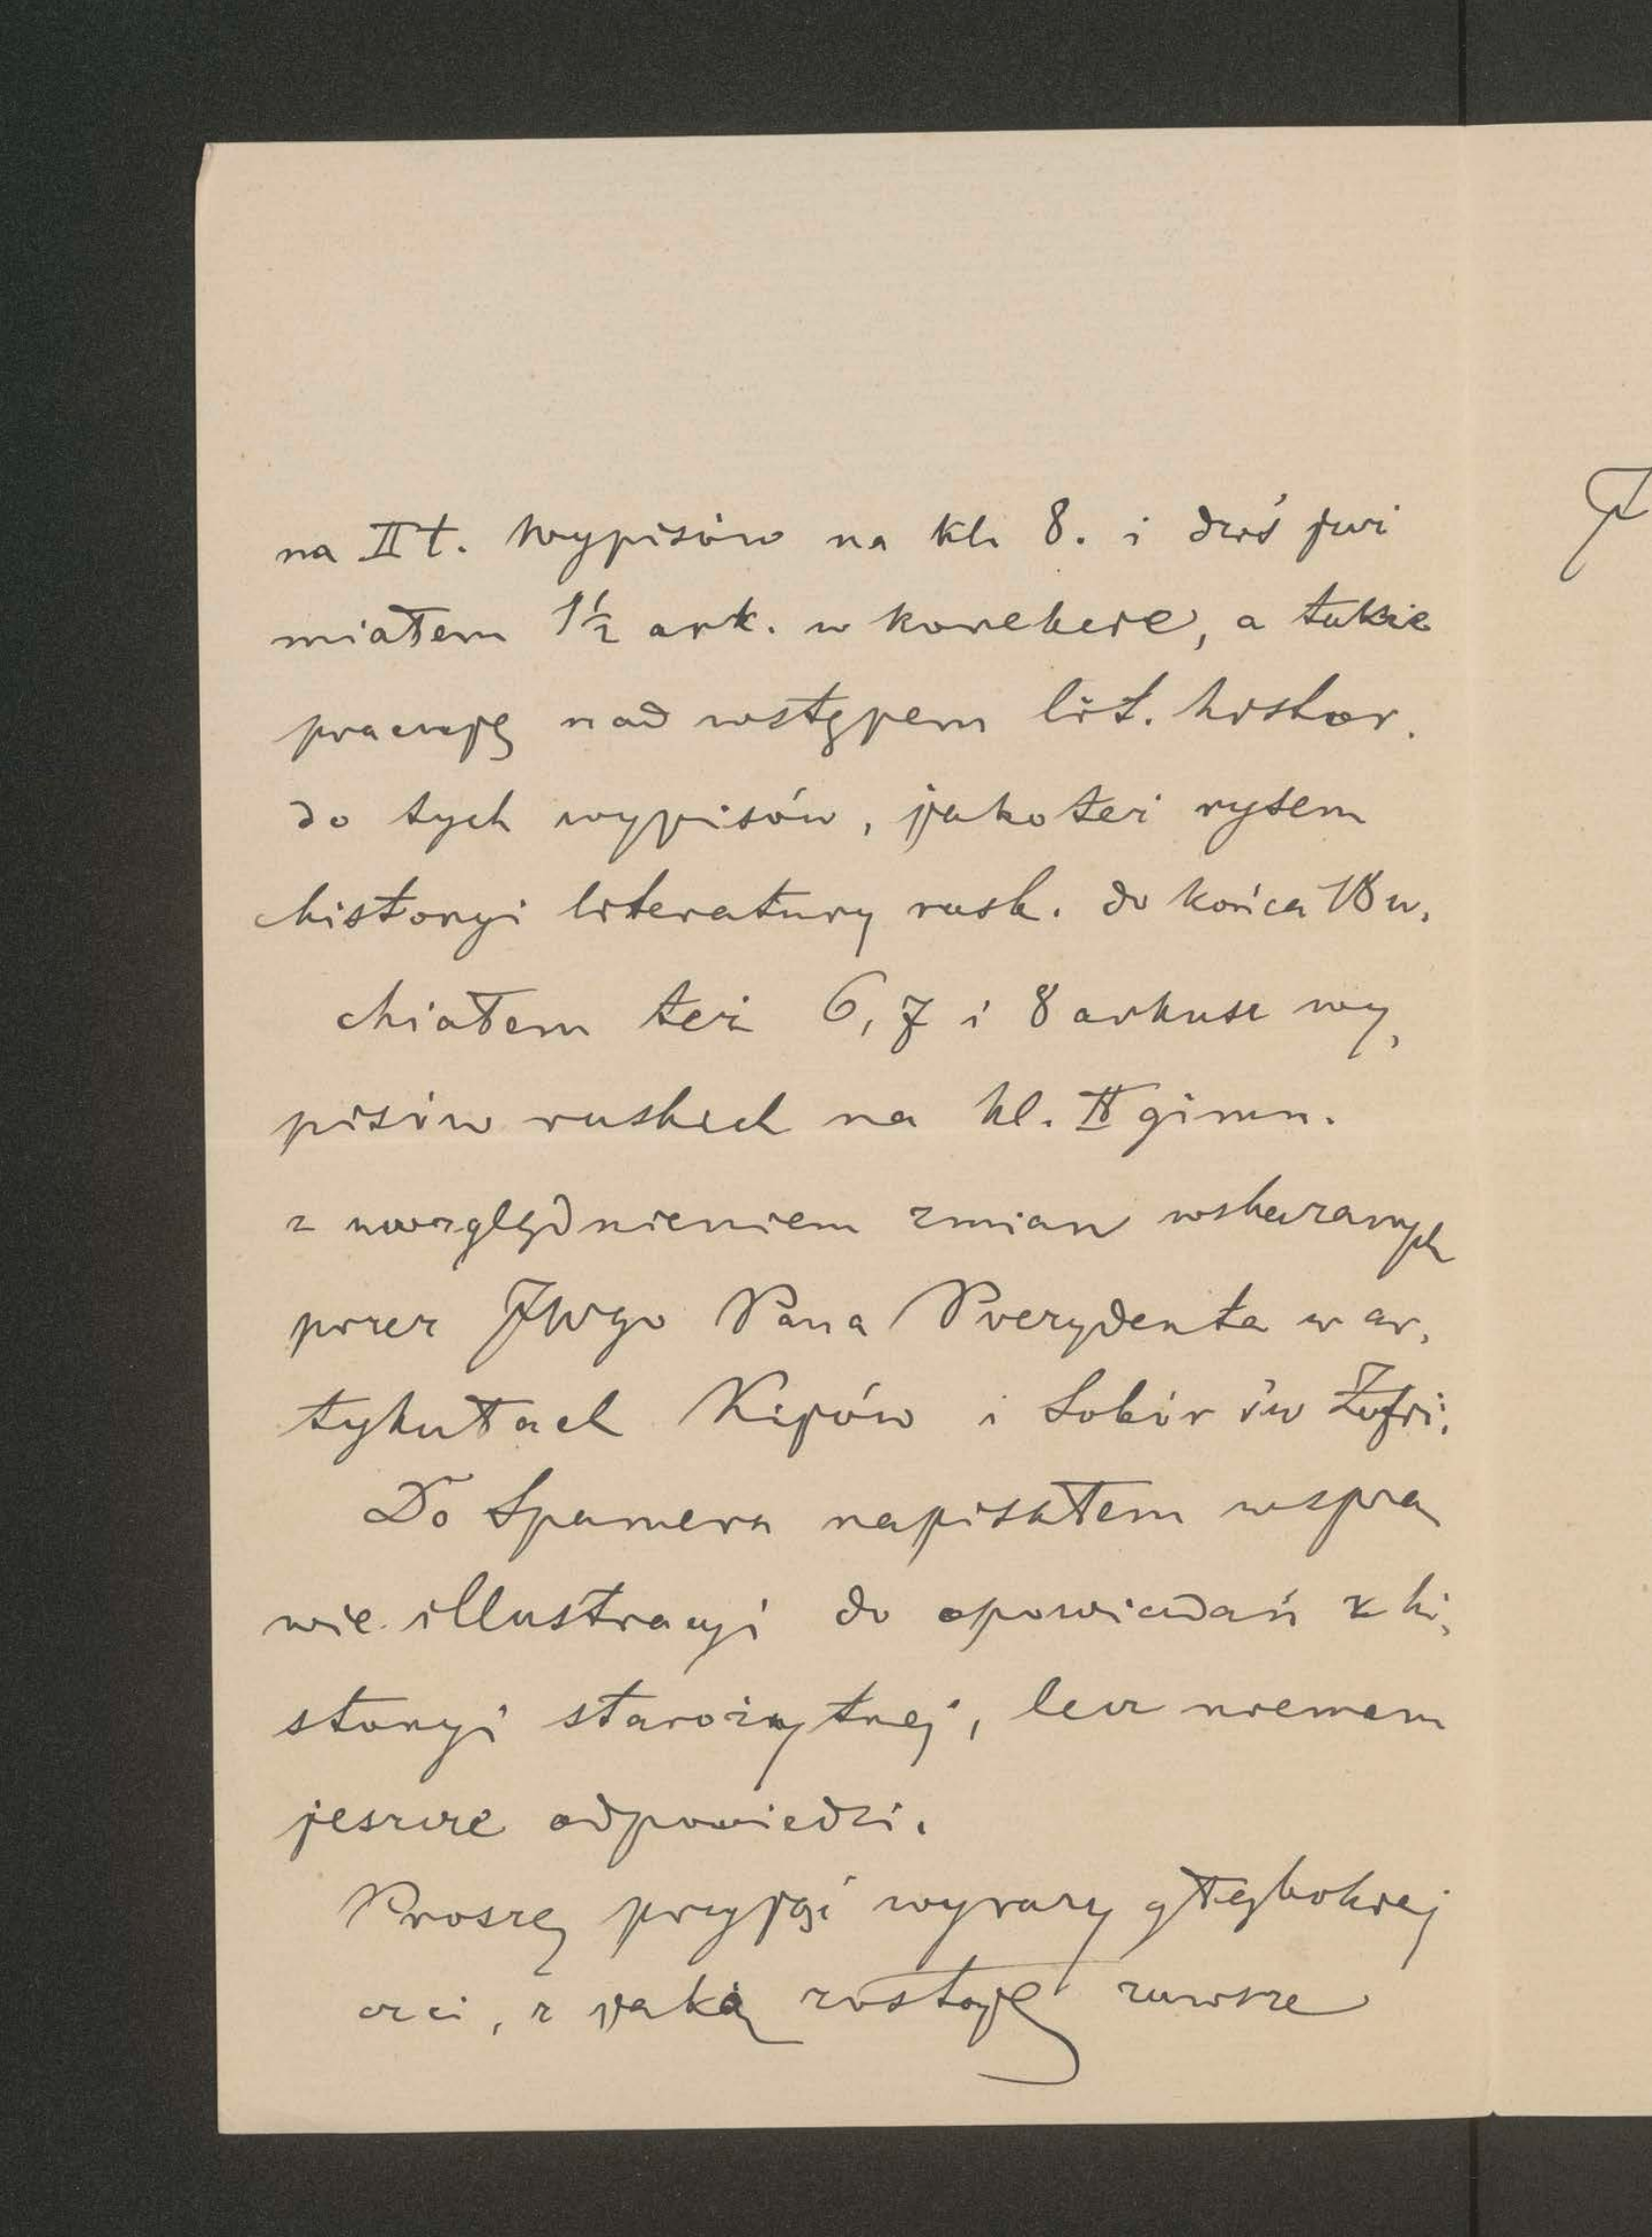 na II t. Wypisów na kl. 8. i dziś już
miałem 1½ ark. w korekcie, a także
pracuję nad wstępem lit. histor.
do tych wypisów, jakoteż rysem
historyi literatury rusk. do końca 18 w.
Miałem też 6, 7 i 8 arkusz wy,
pisów ruskich na kl. II gimn.
z uwzględnieniem zmian wskazanych
przez JWgo Pana Prezydenta w ar,
tykułach Kijów i Sobór św Zofii.
Do Spamera napisałem w spra
wie illustracyi do opowiadań z hi,
storyi starożytnej, lecz niemam
jeszcze odpowiedzi.
Proszę przyjąć wyrazy głębokiej
czci, z jaką zostaję zawsze